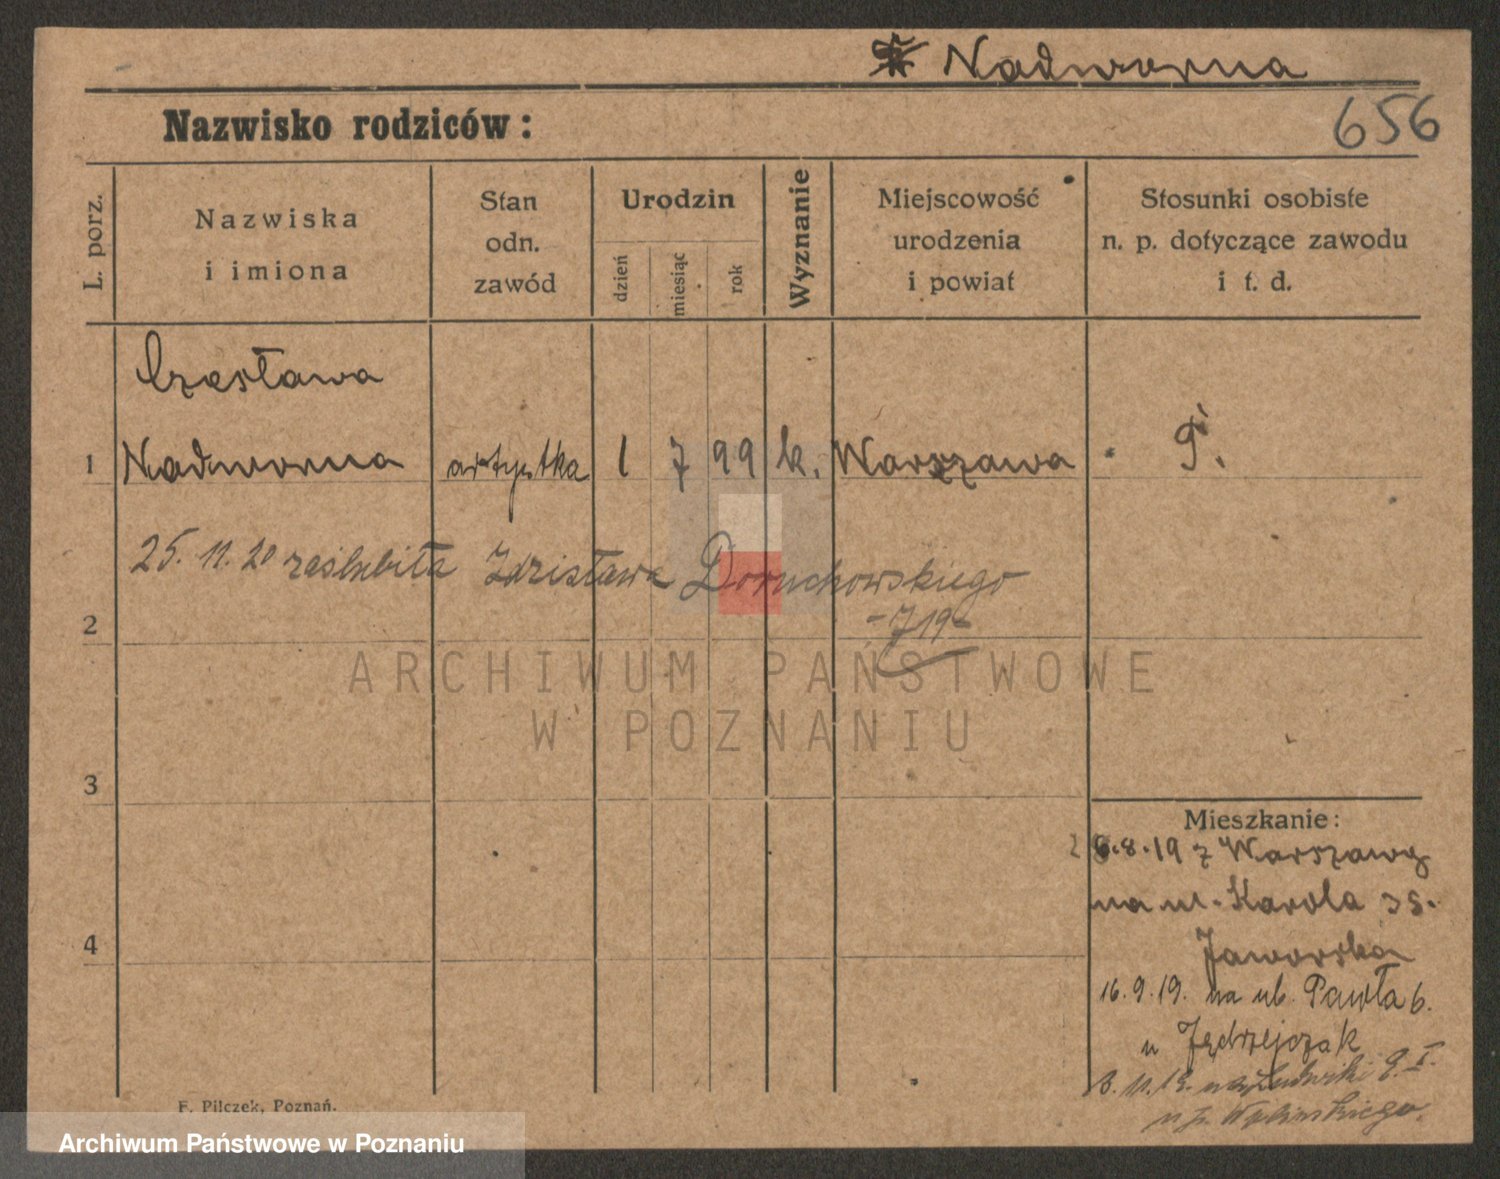 Nadworna
656
Nazwisko rodziców:
L. porz.
Nazwiska
i imiona
Stan
odn.
zawód
Urodzin
dzień
miesiąc
rok
Wyznanie
Miejscowość
urodzenia
i powiat
Stosunki osobiste
n. p. dotyczące zawodu
i t. d.
Czesława
1 Nadworna artystka 1 7 99 k. Warszawa
25. 11. 20 zaślubiła Zdzisława Doruchowskiego
2
-719-
ARCHIWUM PAŃSTWOWE
W POZNANIU
3
4
Mieszkanie:
8.19 z Warszawy
na ul. Karola 35.
Jaworska
16.9.19. na ul. Pawła 6.
u Jędrzejczak
11.19. I.
u p.
F. Pilczek, Poznań.
Archiwum Państwowe w Poznaniu